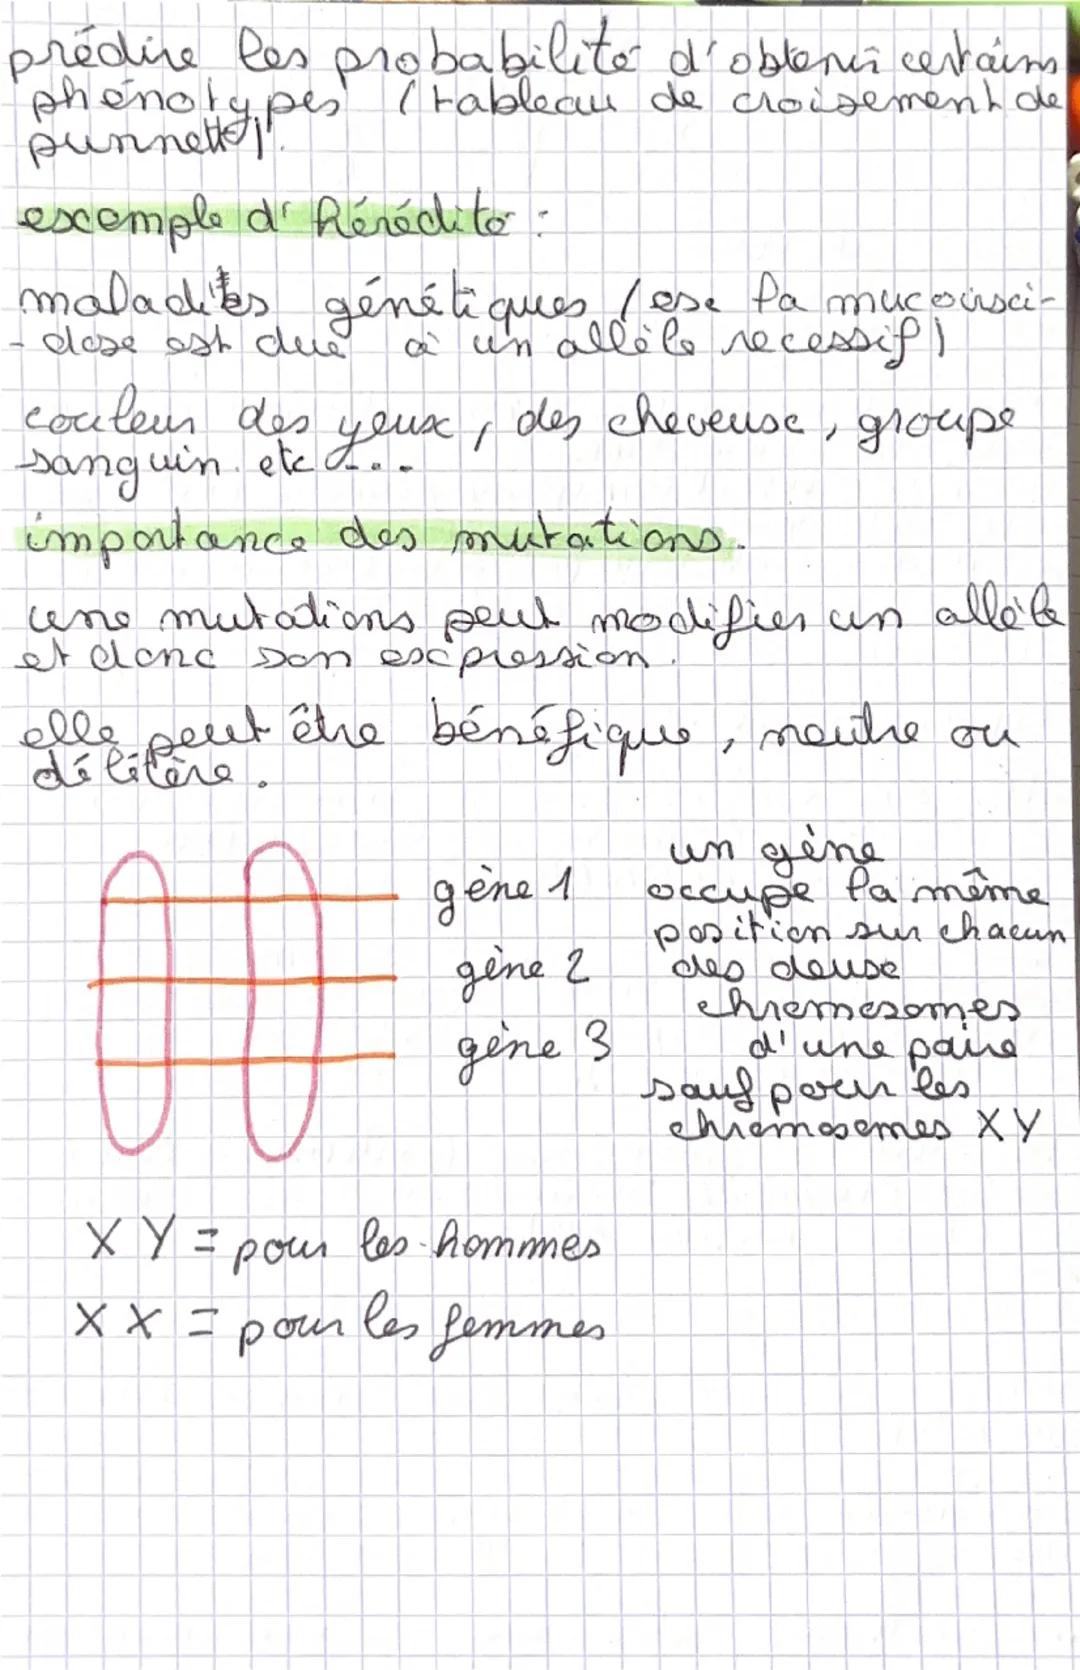 prédire les probabilité d'obtenir certains
phénotypes (tableau de croisement de
punnett).
exemple d'hérédité :
maladies génétiques (ex la mucoisci-
-dose est due à un allèle recessif)
couleur des yeux, des cheveux, groupe
sanguin. etc ...
importance des mutations.
une mutations peut modifier un allèle
et donc son expression.
elle peut être bénéfique, neutre ou
délétère.
un gène
gène 1 occupe la même
position sur chacun
gène 2 des deux
chromosomes
gène 3 d'une paire
sauf pour les
chromosomes XY
XY = pour les hommes
XX = pour les femmes